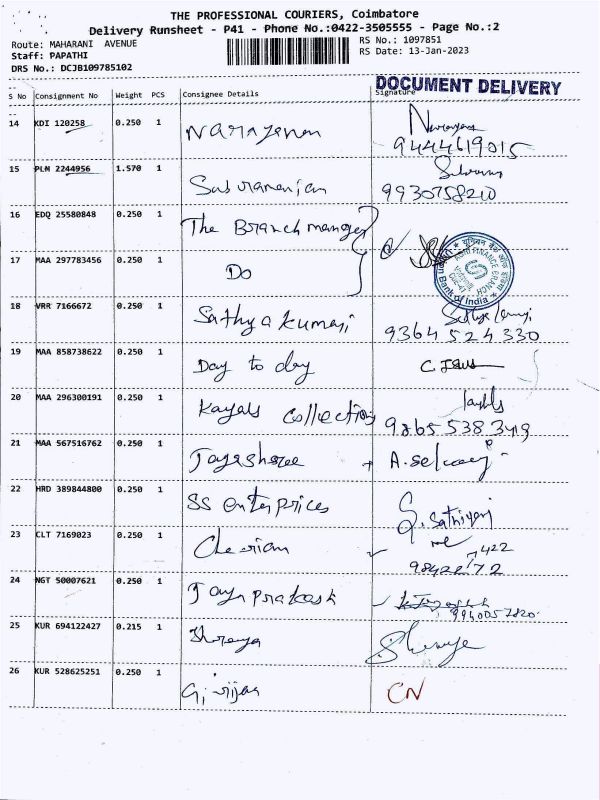 THE PROFESSIONAL COURIERS, Coimbatore
Delivery Runsheet - P41 - Phone No.:0422-3505555 - Page No.:2
Route: MAHARANI AVENUE
RS No.: 1097851
Staff: PAPATHI
RS Date: 13-Jan-2023
DRS No.: DCJB109785102
DOCUMENT DELIVERY
S No Consignment No Weight PCS Consignee Details Signature
14 KDI 120258 0.250 1 Narayanan
9444619015
15 PLM 2244956 1.570 1 Subramanian
9930758210
16 EDQ 25580848 0.250 1 The Branch manager
17 MAA 297783456 0.250 1 Do
Union Bank of India
18 VRR 7166672 0.250 1 Sathya kumari
9364524330
19 MAA 858738622 0.250 1 Day to day
20 MAA 296300191 0.250 1 Kayals collections
9865538
21 MAA 567516762 0.250 1 Jayashree
22 HRD 389844800 0.250 1 SS enterprices
23 CLT 7169023 0.250 1 Cherian
422
24 NGT 50007621 0.250 1 Jaya prakash
25 KUR 694122427 0.215 1 Shreya
26 KUR 528625251 0.250 1 Girijan CN